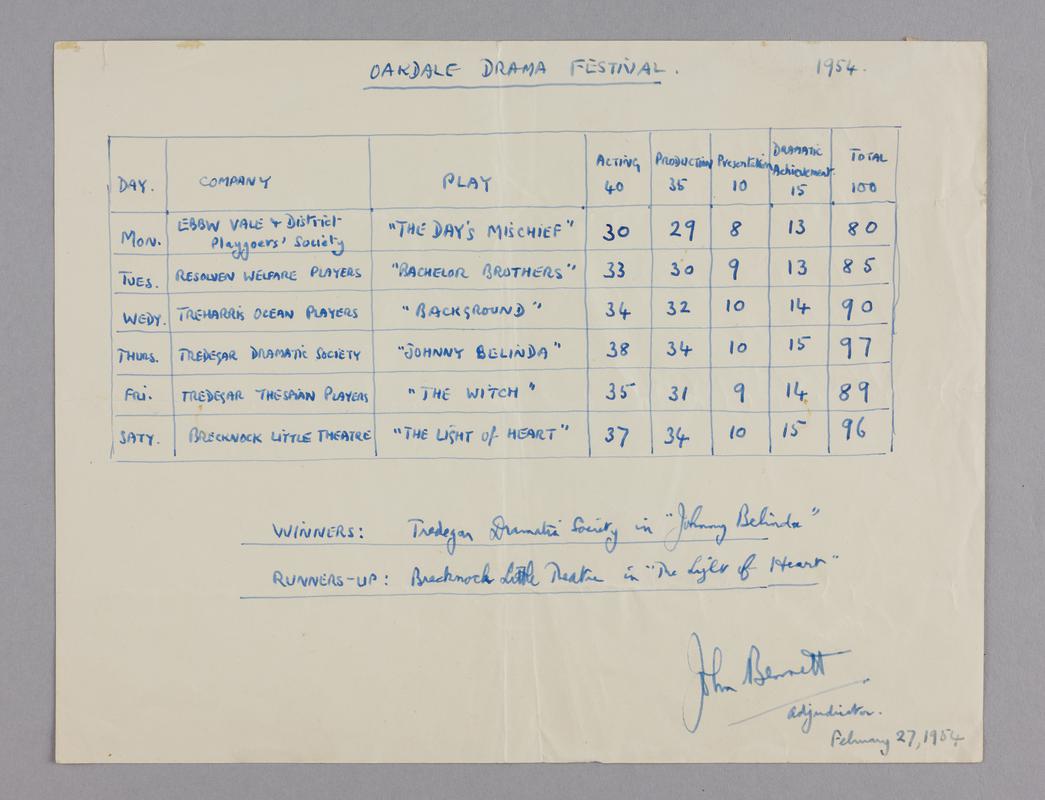 OAKDALE DRAMA FESTIVAL. 1954.
DAY. COMPANY PLAY ACTING 40 PRODUCTION 35 Presentation 10 DRAMATIC Achievement 15 TOTAL 100
MON. EBBW VALE & District Playgoers' Society "THE DAY'S MISCHIEF" 30 29 8 13 80
TUES. RESOLVEN WELFARE PLAYERS "BACHELOR BROTHERS" 33 30 9 13 85
WEDY. TREHARRIS OCEAN PLAYERS "BACKGROUND" 34 32 10 14 90
THURS. TREDEGAR DRAMATIC SOCIETY "JOHNNY BELINDA" 38 34 10 15 97
FRI. TREDEGAR THESPIAN PLAYERS "THE WITCH" 35 31 9 14 89
SATY. BRECKNOCK LITTLE THEATRE "THE LIGHT of HEART" 37 34 10 15 96
WINNERS: Tredegar Dramatic Society in "Johnny Belinda"
RUNNERS-UP: Brecknock Little Theatre in "The Light of Heart"
John Bennett
adjudicator.
February 27, 1954